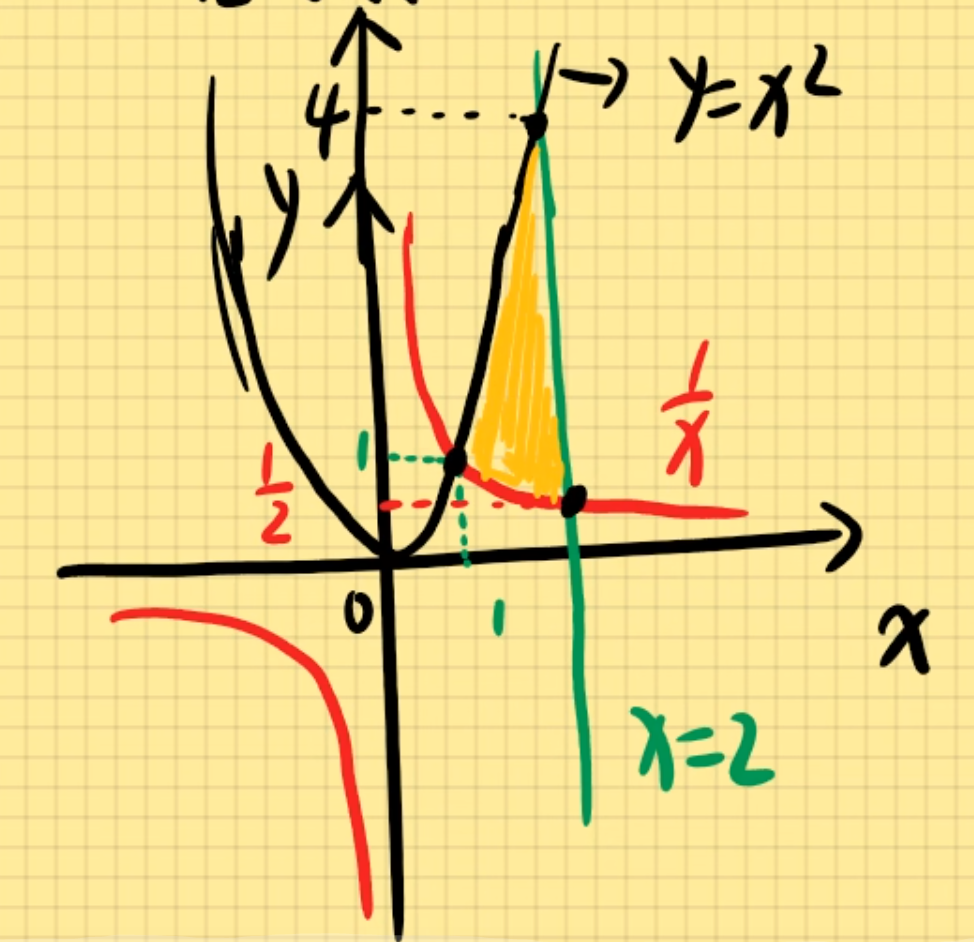 y=x²
4
y
1/x
1
1/2
0
1
x
x=2